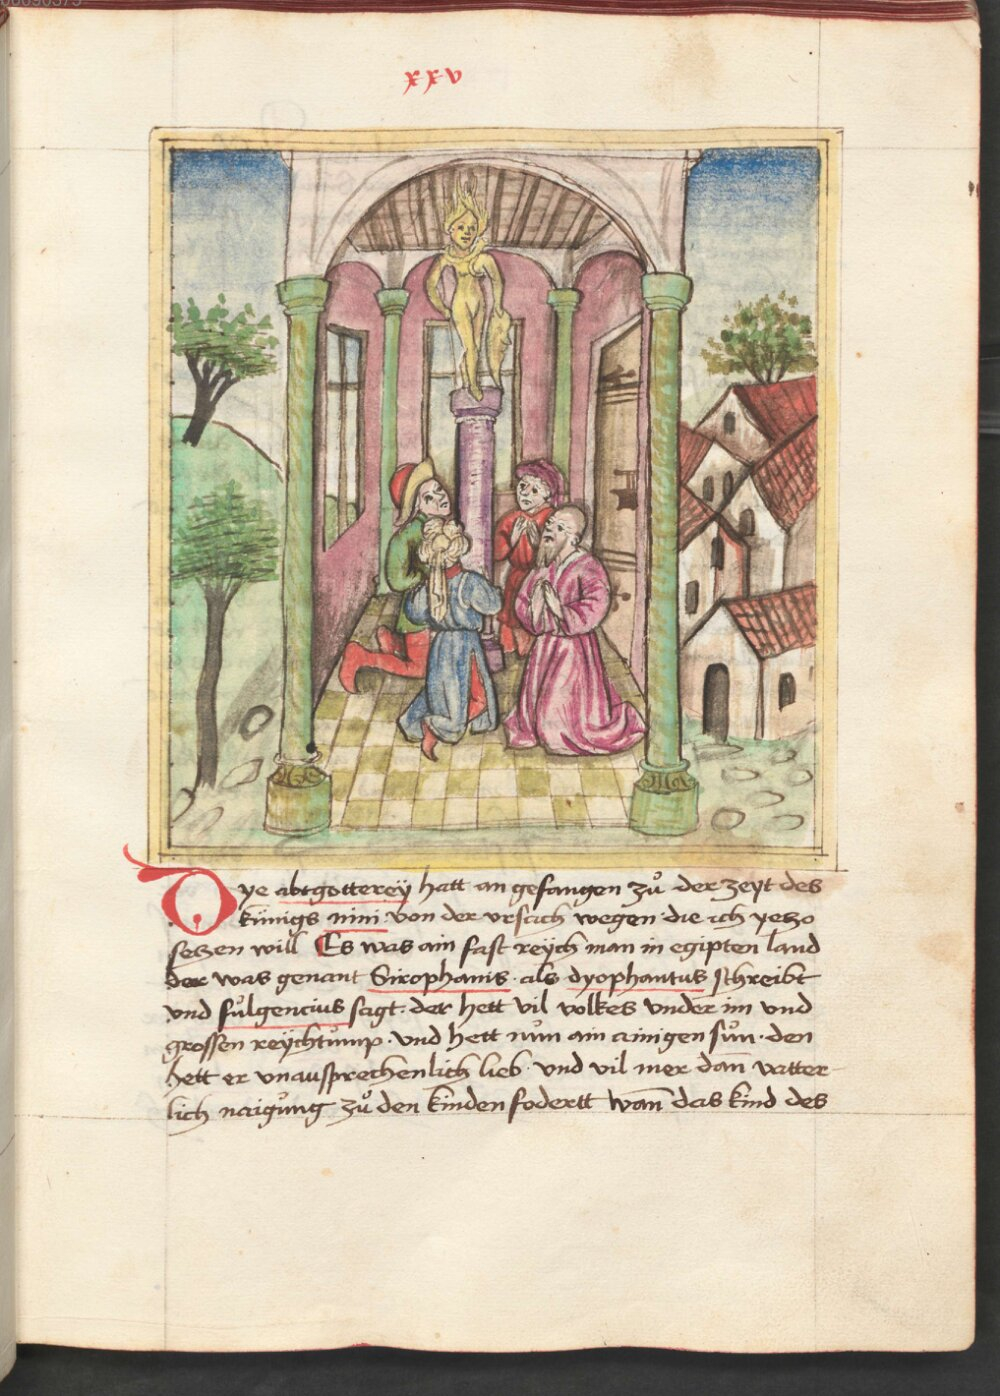 xxv
Dye abtgotterey hatt an gefangen zů der zeyt des
künigs nini von der vrsach wegen die ich yetzo
setzen will Es was ain fast reych man in egipten land
der was genant Sirophanis · als dyophantus schreibt
vnd fulgencius sagt · der hett vil volkes vnder im vnd
grossen reychtump · vnd hett nun ain ainigen sun · den
hett er vnaussprechenlich lieb · vnd vil mer dañ vatter-
lich naigung zů den kinden fodertt wañ das kind des